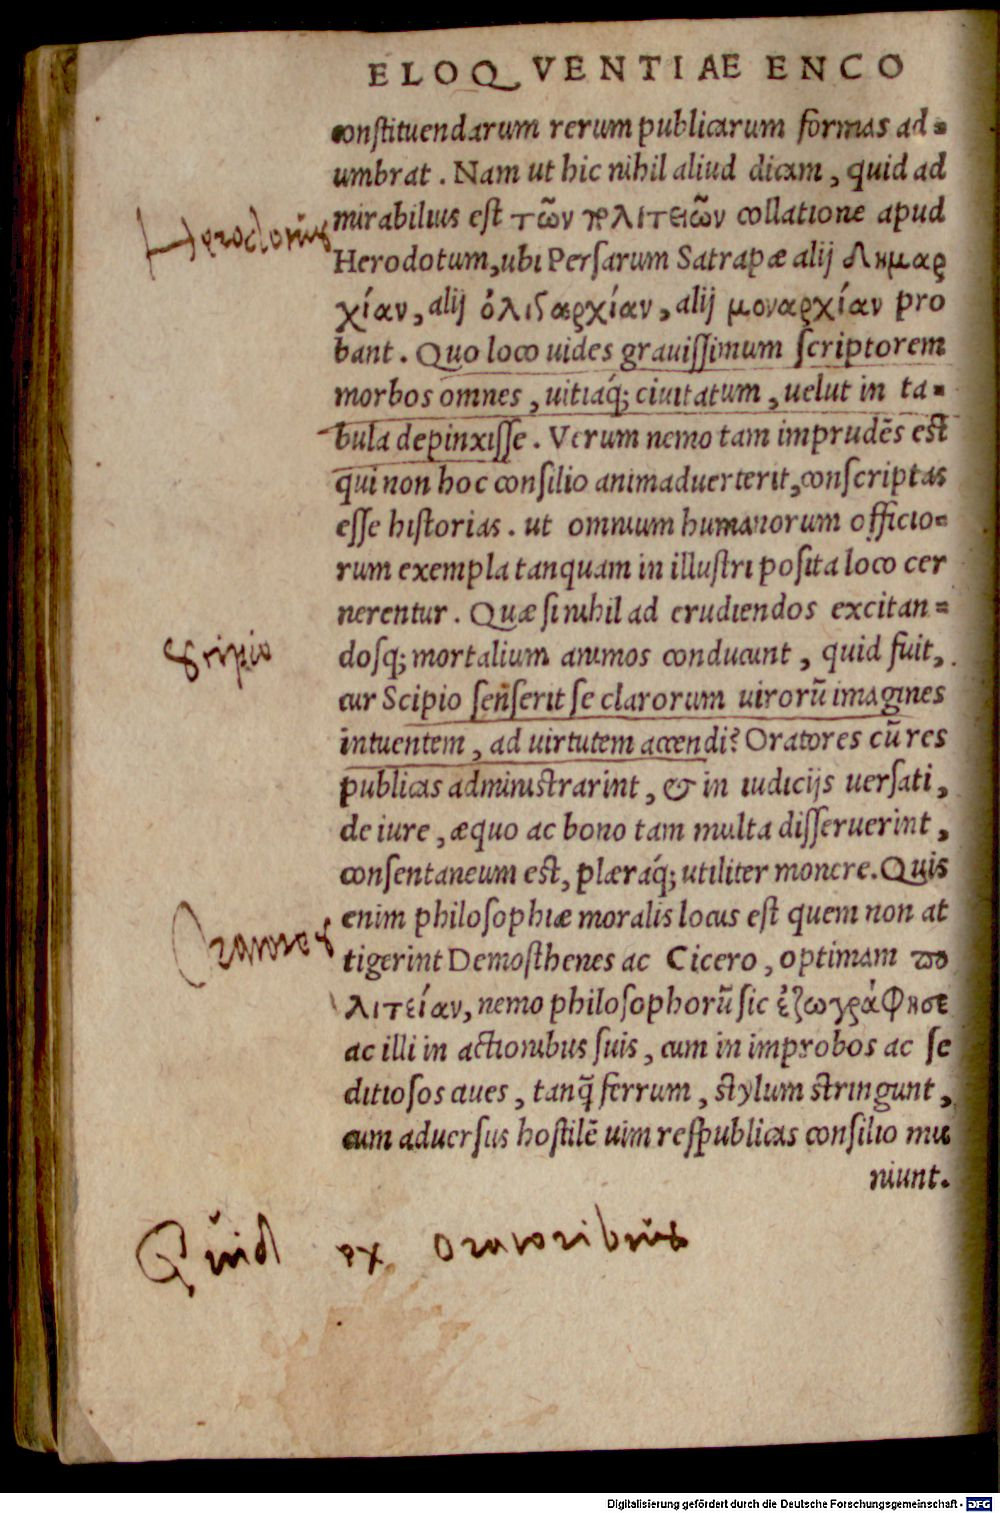 ELOQVENTIAE ENCO
constituendarum rerum publicarum formas ad=
umbrat. Nam ut hic nihil aliud dicam, quid ad
mirabilius est τῶν πολιτειῶν collatione apud
Herodotus
Herodotum, ubi Persarum Satrapæ alij δημαρ
χίαν, alij ὀλιγαρχίαν, alij μοναρχίαν pro
bant. Quo loco uides grauissimum scriptorem
morbos omnes, uitiaq́; ciuitatum, uelut in ta=
bula depinxisse. Verum nemo tam imprudẽs est
qui non hoc consilio animaduerterit, conscriptas
esse historias. ut omnium humanorum officio=
rum exempla tanquam in illustri posita loco cer
nerentur. Quæ si nihil ad erudiendos excitan=
Scipio
dosq; mortalium animos conducunt, quid fuit,
cur Scipio senserit se clarorum uirorũ imagines
intuentem, ad uirtutem accendi? Oratores cũ res
publicas administrarint, & in iudicijs uersati,
de iure, æquo ac bono tam multa disseruerint,
consentaneum est, plæraq́; utiliter monere. Quis
enim philosophiæ moralis locus est quem non at
Oratores
tigerint Demosthenes ac Cicero, optimam πο
λιτείαν, nemo philosophorũ sic ἐζωγράφησε
ac illi in actionibus suis, cum in improbos ac se
ditiosos ciues, tanq̃ ferrum, stylum stringunt,
cum aduersus hostilẽ uim respublicas consilio mu
niunt.
Quid ex Oratoribus
Digitalisierung gefördert durch die Deutsche Forschungsgemeinschaft - DFG